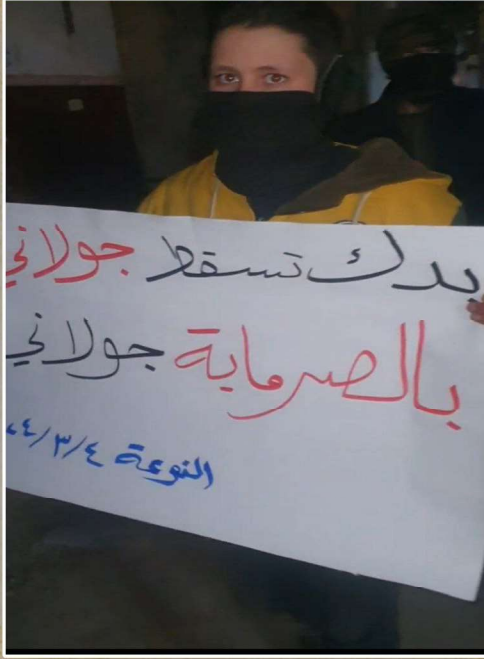 بدك تسقط جولاني
بالصرماية جولاني
٢٤/٣/٤